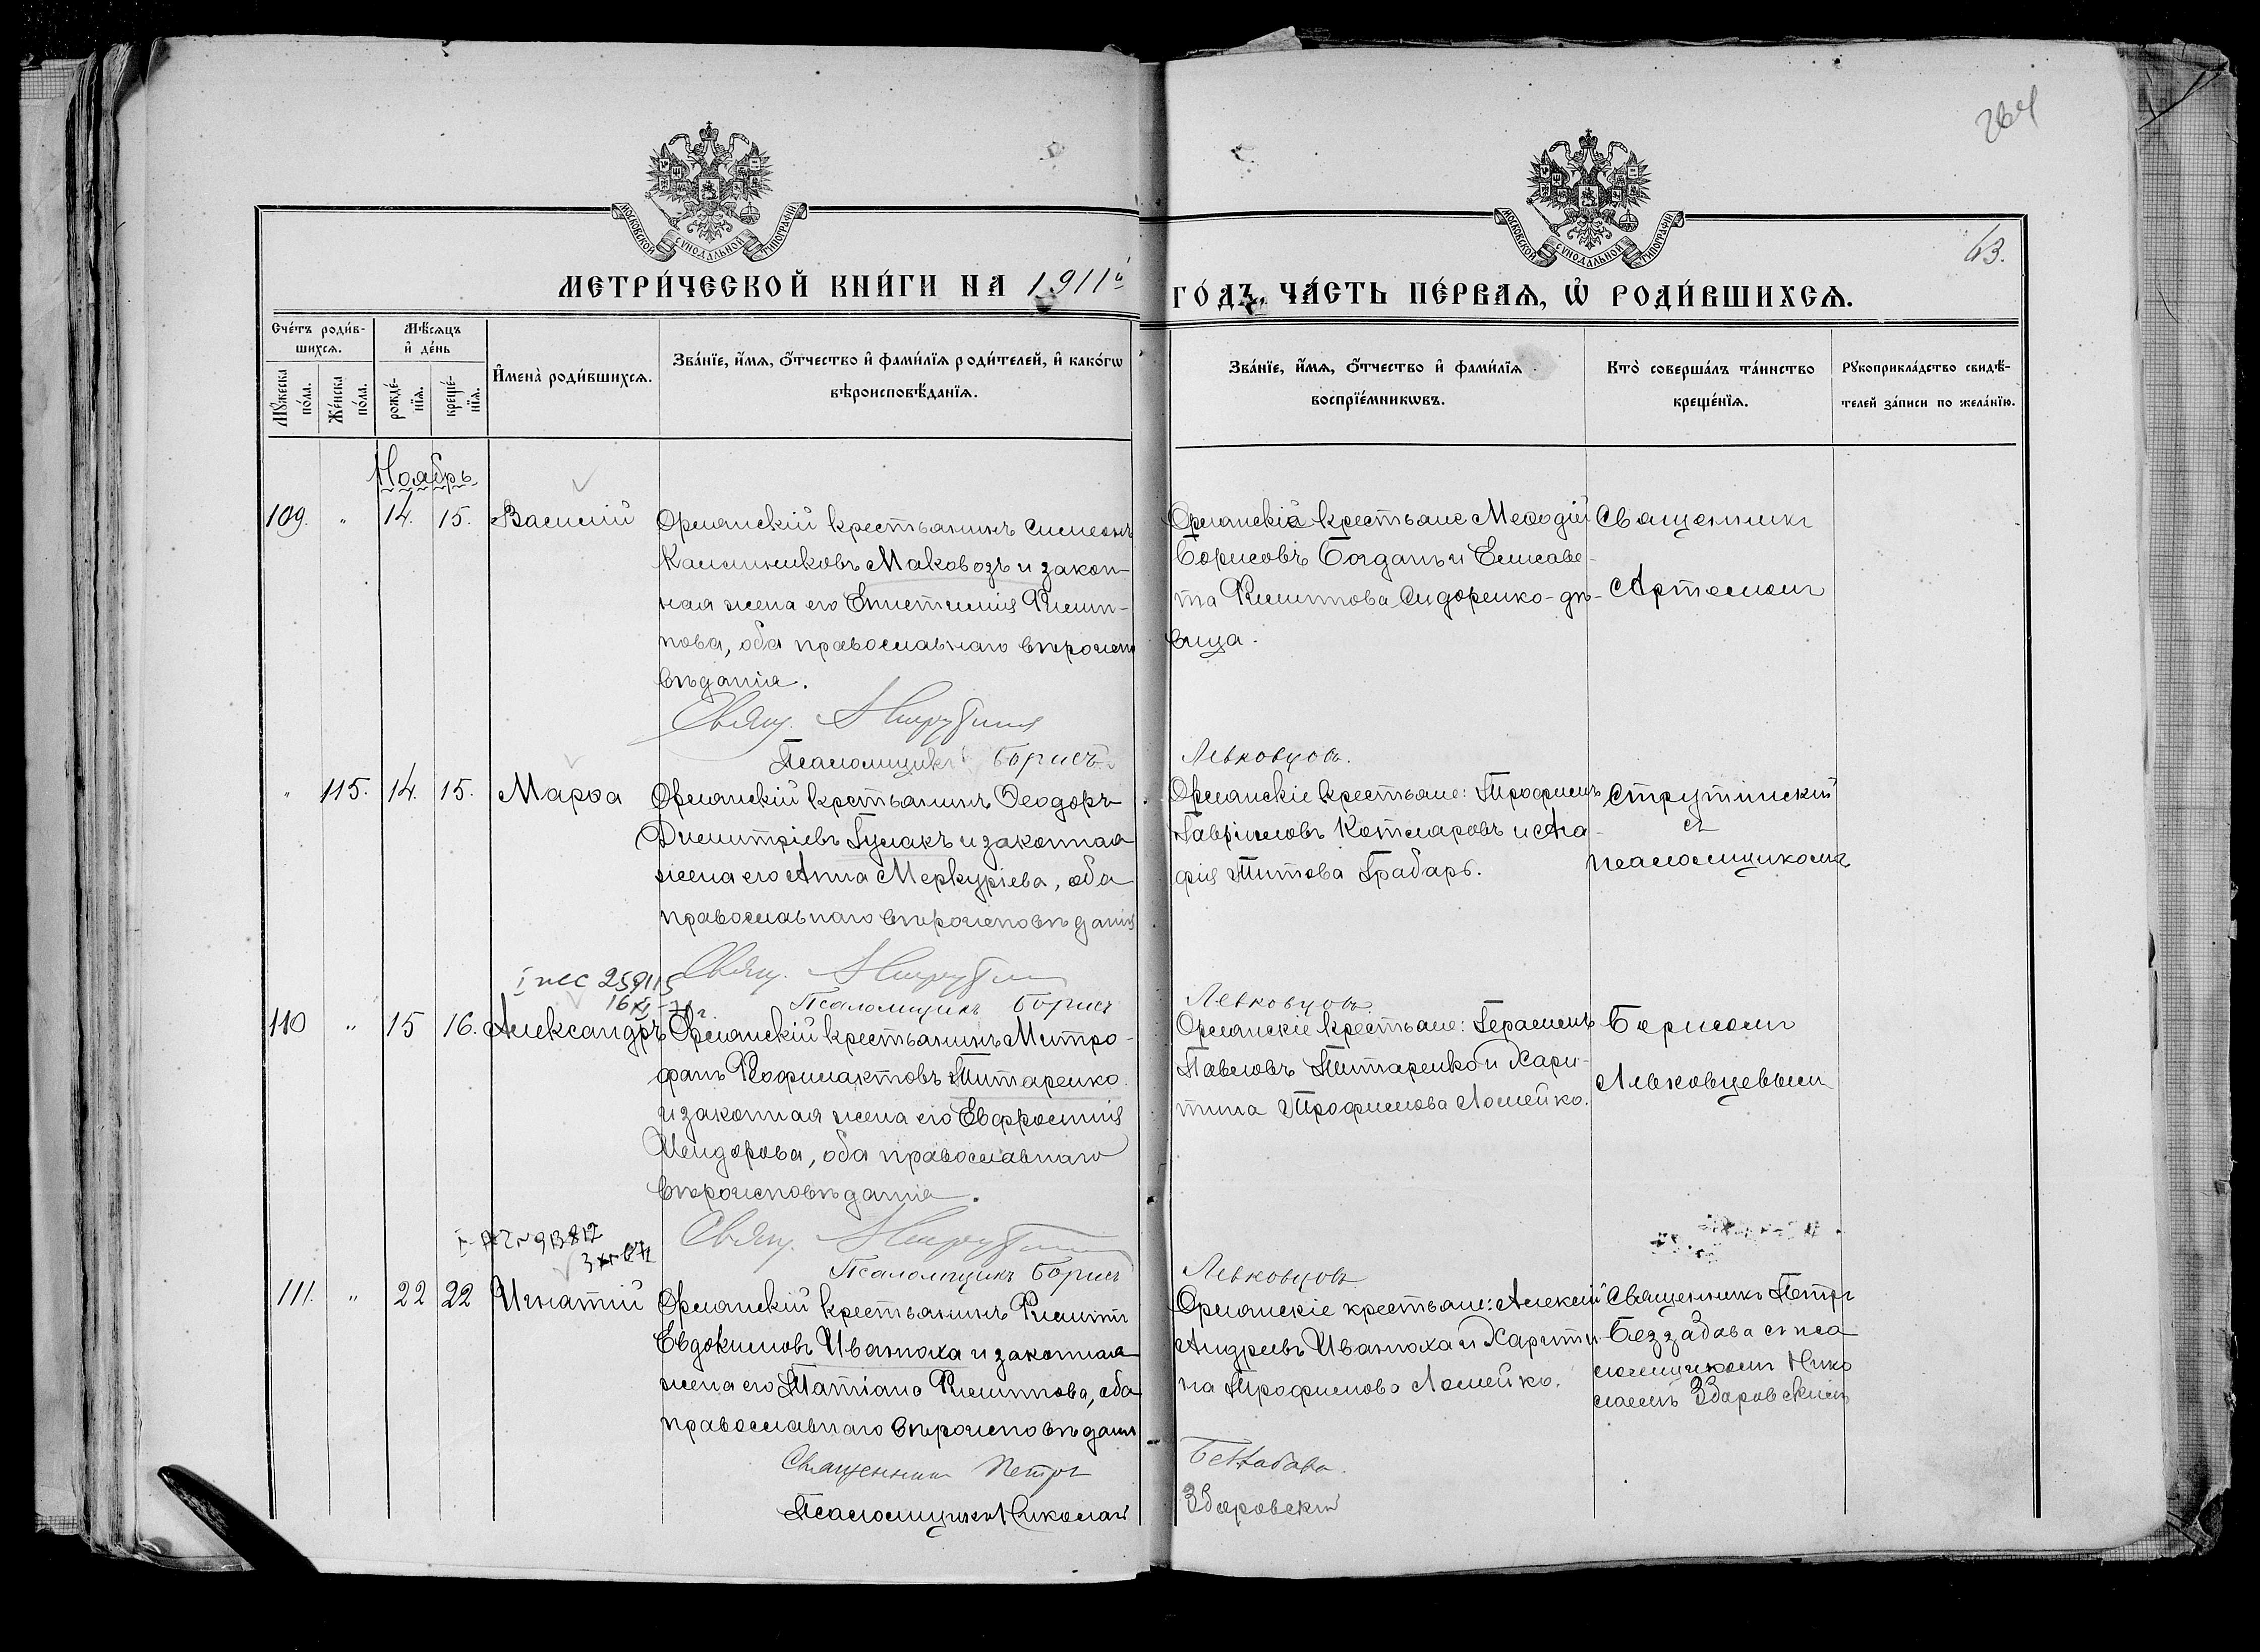 264
63.
МОСКОВСКОЙ СѴНОДАЛЬНОЙ ТИПОГРАФІИ
МОСКОВСКОЙ СѴНОДАЛЬНОЙ ТИПОГРАФІИ
МЕТРИ́ЧЕСКОЙ КНИ́ГИ НА 1911й
ГО́ДЪ, ЧА́СТЬ ПЕ́РВАѦ, Ѡ҆ РОДИ́ВШИХСѦ.
Сче́тъ роди́в-
шихсѧ.
Мꙋ́жеска по́ла.
Же́нска по́ла.
Мѣ́сѧцъ
и҆ де́нь
рожде́-
нїѧ.
креще́-
нїѧ.
И҆мена̀ роди́вшихсѧ.
Зва́нїе, и҆́мѧ, ѻ҆́тчество и҆ фами́лїѧ роди́телей, и҆ како́гѡ
вѣроисповѣ́данїѧ.
Зва́нїе, и҆́мѧ, ѻ҆́тчество и҆ фами́лїѧ
воспрїе́мникѡвъ.
Кто̀ соверша́лъ та́инство
креще́нїѧ.
Рꙋкоприкла́дство свидѣ́-
телей за́писи по жела́нїю.
Ноябрь
109. " 14. 15. Василій
Орлянскій крестьянинъ Симеонъ
Калинниковъ Маковозъ и закон-
ная жена его Епистимія Филип-
пова, оба православнаго вѣроиспо
вѣданія.
Свящ.
Псаломщикъ Борисъ
Орлянскіе крестьяне Меѳодій
Борисовъ Богданъ и Елисаве-
та Филиппова Сидоренко-дѣ-
вица.
Левковцовъ.
Священникъ
Артемонъ
" 115. 14. 15. Марѳа
Орлянскій крестьянинъ Ѳеодоръ
Димитріевъ Гулакъ и законная
жена его Анна Меркуріева, оба
православнаго вѣроисповѣданія
Свящ.
Псаломщикъ Борисъ
Орлянскіе крестьяне: Трофимъ
Гавріиловъ Котляровъ и Ага-
фія Титова Грабарь.
Левковцовъ.
Струтинскій
съ
псаломщикомъ
110 " 15 16. Александръ
Орлянскій крестьянинъ Митро-
фанъ Ѳеофилактовъ Титаренко
и законная жена его Евфросинія
Исидорова, оба православнаго
вѣроисповѣданія.
Свящ.
Псаломщикъ Борисъ
Орлянскіе крестьяне: Герасимъ
Павловъ Титаренко и Хари-
тина Трофимова Ломейко.
Левковцовъ
Борисомъ
Левковцевымъ
111. " 22 22 Игнатій
Орлянскій крестьянинъ Филиппъ
Евдокимовъ Иванюха и законная
жена его Татіана Филиппова, оба
православнаго вѣроисповѣданія
Священникъ Петръ
Псаломщикъ Николай
Орлянскіе крестьяне: Алексій
Андреевъ Иванюха и Харити
на Трофимова Ломейко.
Беззабава.
Здоровскій
Священникъ Петръ
Беззабава съ пса
ломщикомъ Нико
лаемъ Здоровскимъ